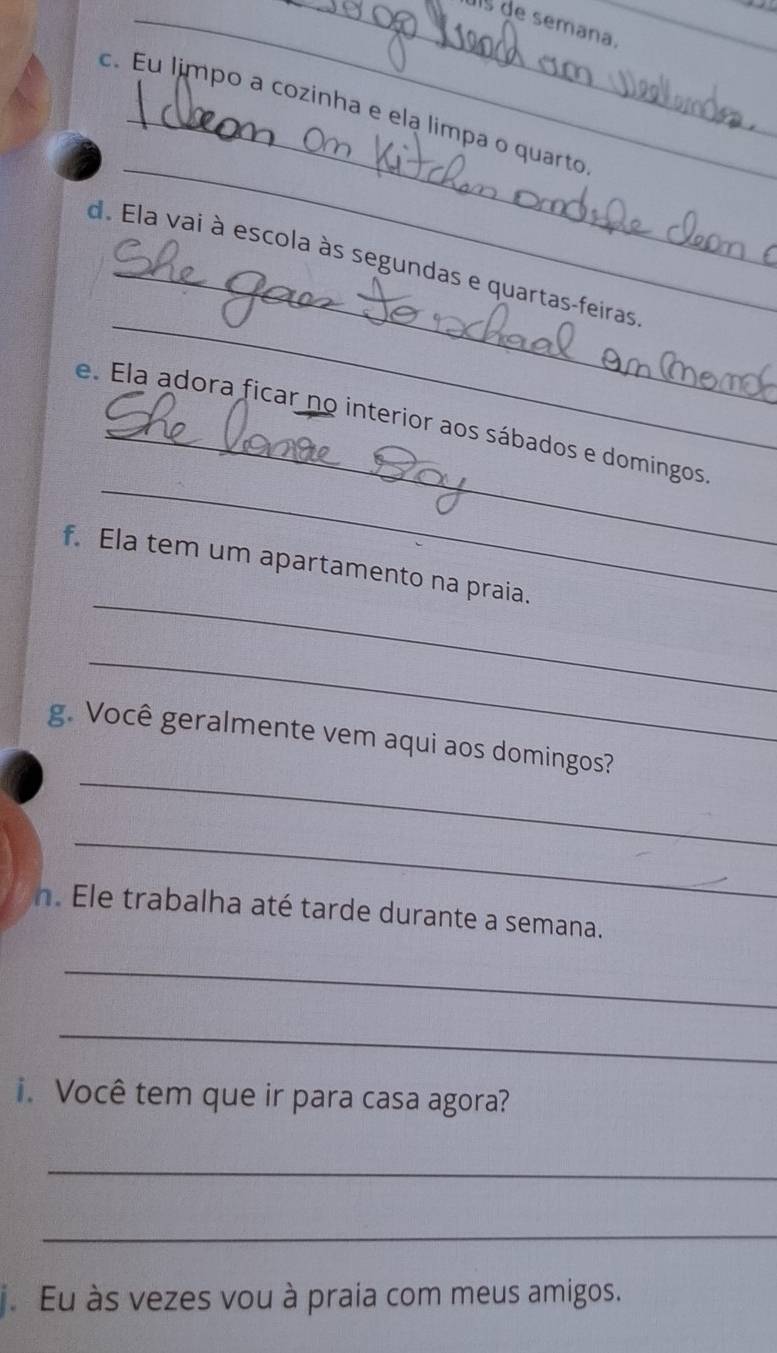 de semana.
am
c. Eu limpo a cozinha e ela limpa o quarto.
I cleom on Kitchen ond she cleon
d. Ela vai à escola às segundas e quartas-feiras.
She goes to school on
e. Ela adora ficar no interior aos sábados e domingos.
She
f. Ela tem um apartamento na praia.
g. Você geralmente vem aqui aos domingos?
h. Ele trabalha até tarde durante a semana.
i. Você tem que ir para casa agora?
j. Eu às vezes vou à praia com meus amigos.